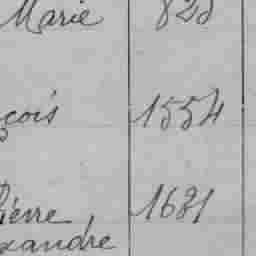 Marie 828
çois 1554
Pierre 1681
xandre